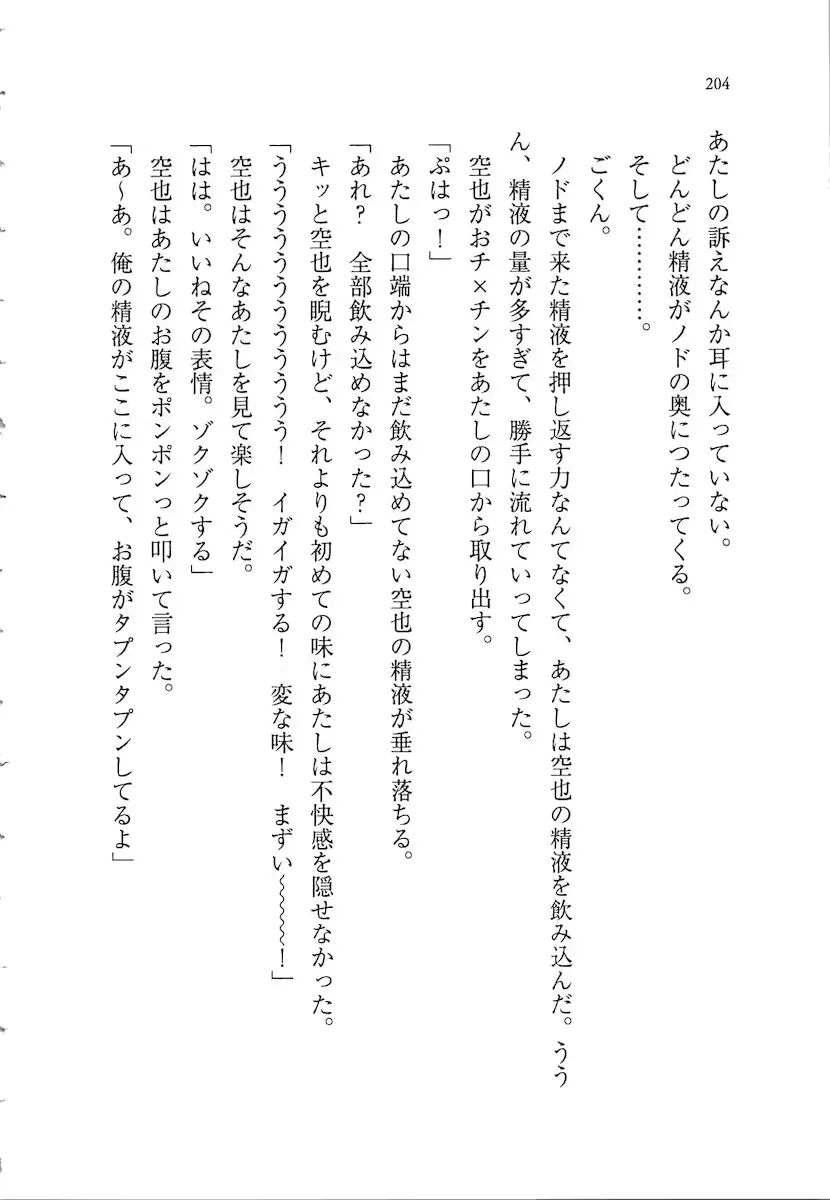 204
あたしの訴えなんか耳に入っていない。
どんどん精液がノドの奥につたってくる。
そして…………。
ごくん。
ノドまで来た精液を押し返す力なんてなくて、あたしは空也の精液を飲み込んだ。うう
ん、精液の量が多すぎて、勝手に流れていってしまった。
空也がおチ×チンをあたしの口から取り出す。
「ぷはっ！」
あたしの口端からはまだ飲み込めてない空也の精液が垂れ落ちる。
「あれ？　全部飲み込めなかった？」
キッと空也を睨むけど、それよりも初めての味にあたしは不快感を隠せなかった。
「うううううううううううう！　イガイガする！　変な味！　まずい〜〜〜〜！」
空也はそんなあたしを見て楽しそうだ。
「はは。いいねその表情。ゾクゾクする」
空也はあたしのお腹をポンポンっと叩いて言った。
「あ〜あ。俺の精液がここに入って、お腹がタプンタプンしてるよ」